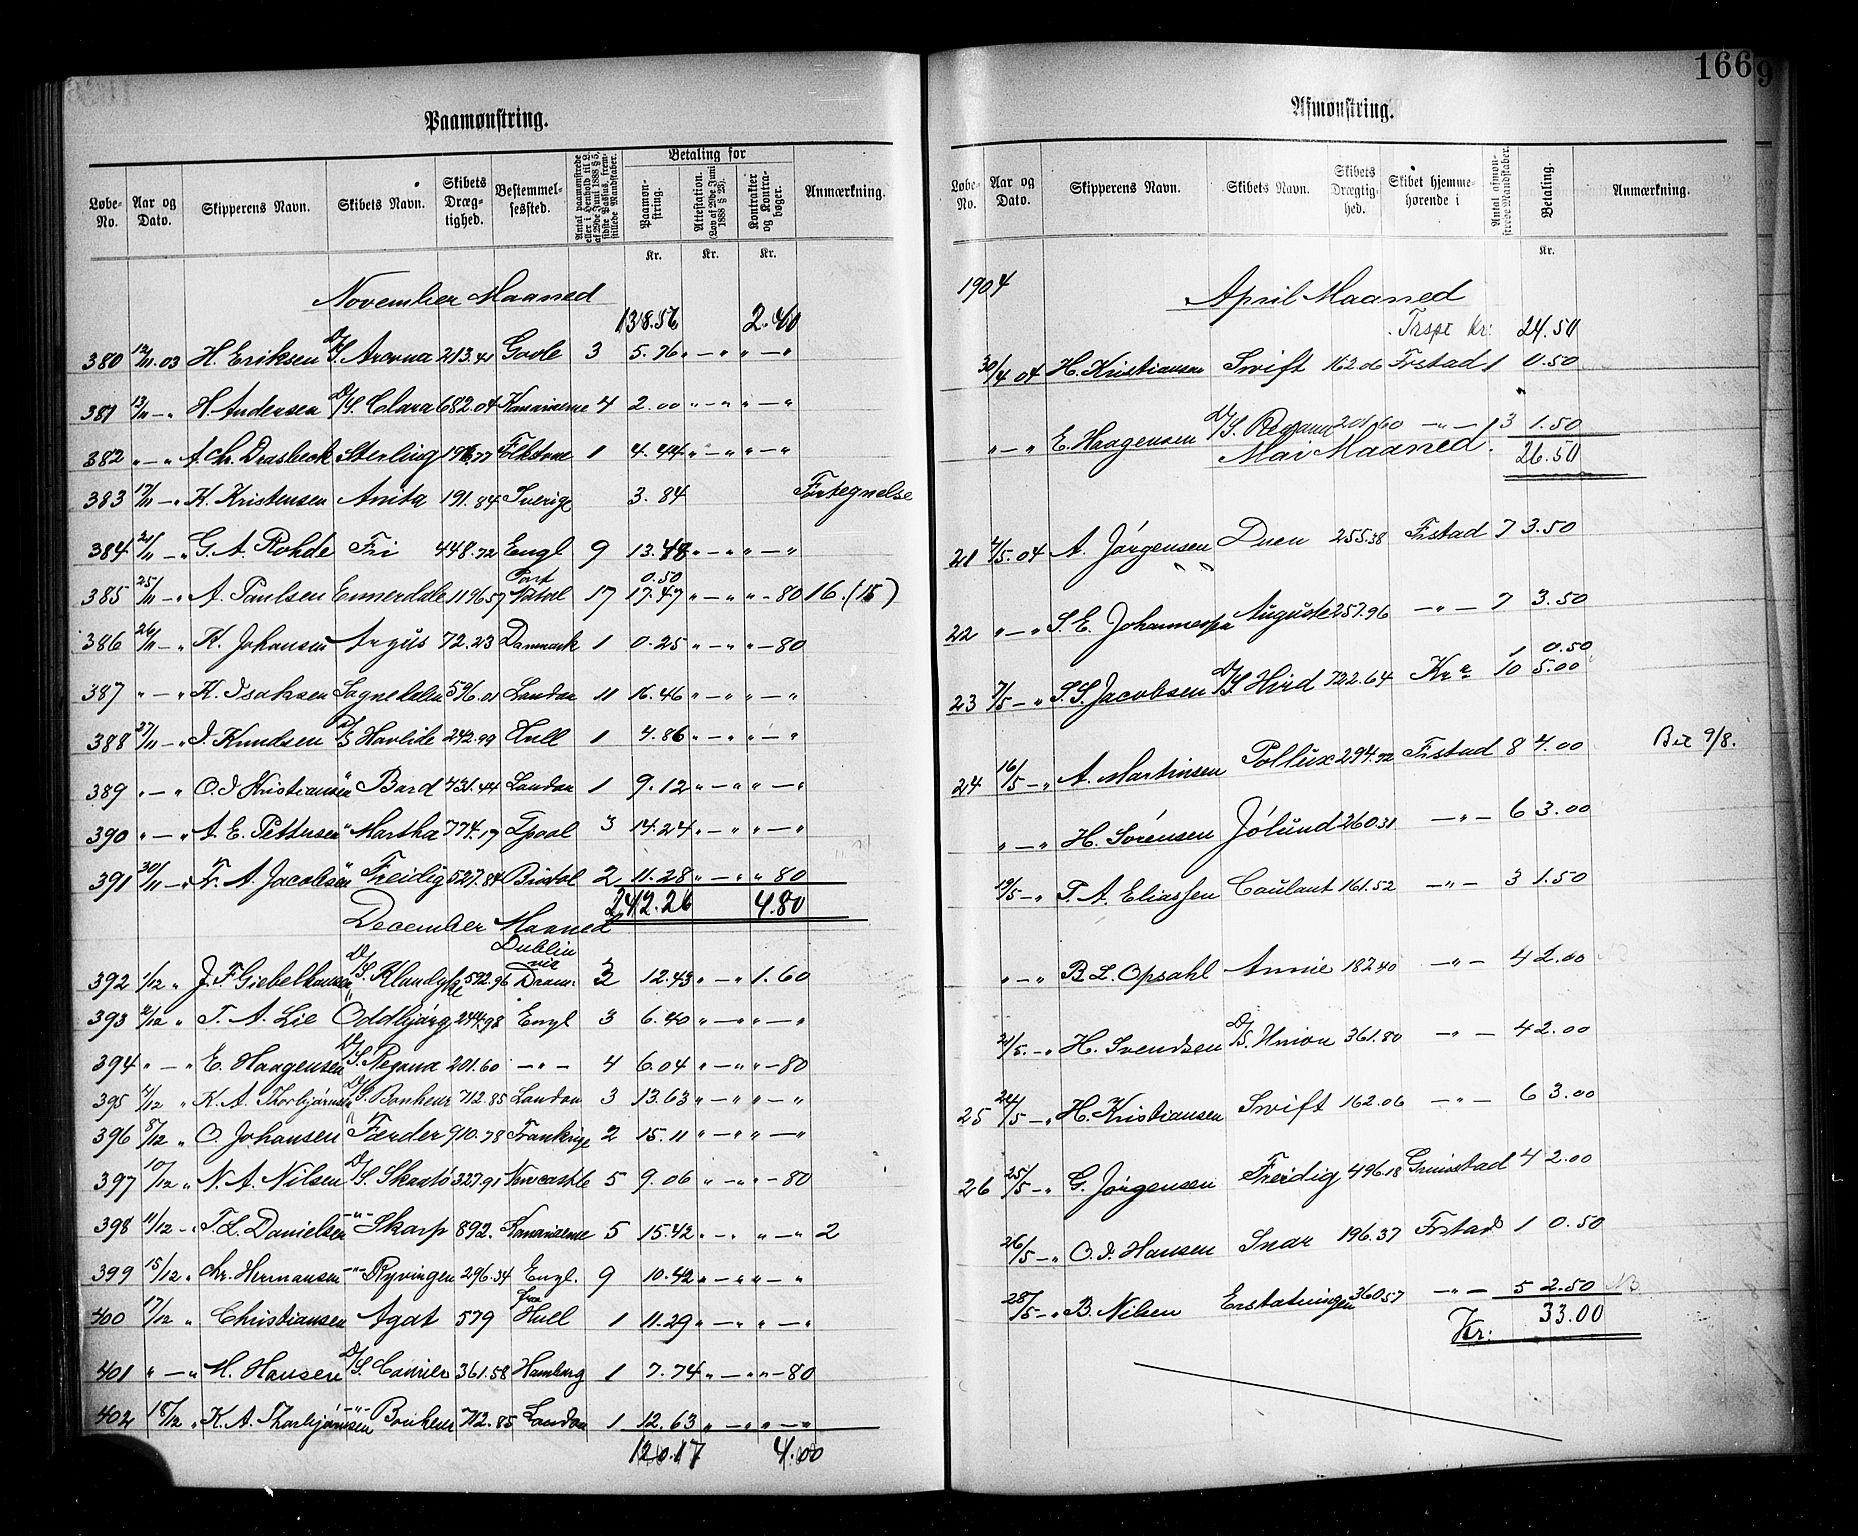 166
9
Paamønstring.
Løbe-No. Aar og Dato. Skipperens Navn. Skibets Navn. Skibets Dræg-tighed. Bestemmel-sessted. Antal paamønstrede eller i Henhold til L. af 29de Juni 1888 § 5, sidste Passus, frem-stillede Mandskaber. Betaling for Paamøn-string. Attestation. (Lov af 29de Juni 1888 § 23). Kontrakter og Kontra-bøger. Anmærkning.
Kr. Kr. Kr.
November Maaned
138.56 2.40
380 12/11.03 H. Eriksen D/S. Avorna 213.41 Goole 3 5.76 " — " " — "
381 13/11 — " H. Andersen D/S. Clara 682.04 Kanarieøerne 4 2.00 " — " " — "
382 " — " A. Chr. Drasbeck Sterling 196.77 Folkstone 1 4.44 " — " " — "
383 17/11 — " K. Kristensen Anita 191.84 Sverige 3.84 Fortegnelse
384 21/11 — " G. A. Rohde Fri 448.72 Engl 9 13.48 " — " " — "
Port 0.50
385 25/11 — " A. Paulsen Ennerdale 1196.57 Natal 17 17.47 " — " " — 80 16. (15)
386 26/11 — " K. Johansen Argus 72.23 Danmark 1 0.25 " — " " — 80
387 " — " K. Isaksen Sognedalen 596.01 London 11 16.46 " — " " — "
388 27/11 — " J. Knudsen D/S Havlide 242.99 Hull 1 4.86 " — " " — "
389 " — " O. J. Kristiansen " Bard 731.44 London 1 9.12 " — " " — "
390 " — " A. E. Pettersen " Martha 774.17 Lpool 3 14.24 " — " " — "
391 30/11 — " Fr. A. Jacobsen " Freidig 527.84 Bristol 2 11.28 " — " " 80
242.26 4.80
December Maaned
Dublin
392 1/12 " J. F. Giebelhausen D/S. Klandyke 592.96 via Dram. 3 12.43 " — " 1.60
393 2/12 " T. A. Lie Oddbjørg 244.98 Engl 3 6.40 " — " " — "
394 " — " E. Haagensen D/S. Regana 201.60 — " — 4 6.04 " — " " — 80
395 4/12 " K. A. Thorbjørnsen D/S. Bonheur 712.85 London 3 13.63 " — " " — "
396 8/12 " O. Johansen " Færder 910.78 Frankrige 2 15.11 " — " " — "
397 10/12 " N. A. Nilsen D/S. Skastø 327.91 Newcastle 5 9.06 " — " " — 80
398 11/12 — " T. L. Danielsen — " — Skarp 892. Kanarieøerne 5 15.42 " — " " — " 2
399 15/12 " Chr. Hermansen — " — Ryvingen 296.34 Engl. 9 10.42 " — " " — "
400 17/12 " Christiansen Agat 579 Hull 1 11.29 " — " " — "
401 " — " M. Hansen D/S. Courier 361.58 Hamburg 1 7.74 " — " " — 80
402 18/12 " K. A. Thorbjørnsen — " — Bonheur 712.85 London 1 12.63 " — " " — "
120.17 4.00
Afmønstring.
Løbe-No. Aar og Dato. Skipperens Navn. Skibets Navn. Skibets Drægtig-hed. Skibet hjemme-hørende i Antal afmøn-strede Mandskaber. Betaling. Anmærkning.
Kr.
1904 April Maaned
Trspt Kr: 24.50
30/4 04 H. Kristiansen Swift 162.06 Frstad 1 0.50
" — " E. Haagensen D/S. Regana 201.60 — " — 3 1.50
Mai Maaned. 26.50
21 4/5. 04 A. Jørgensen Duen 255.38 Frstad 7 3.50
22 " — " S. E. Johannessen Auguste 257.96 — " — 7 3.50
1 0.50
23 7/5 — " S. S. Jacobsen D/S. Hird 722.64 Kra 10 5.00
24 16/5 — " A. Martinsen Pollux 294.72 Frstad 8 4.00 Bet 9/8.
" — " H. Sørensen Jølund 260.31 — " — 6 3.00
19/5 — " P. A. Eliassen Coulant 161.52 — " — 3 1.50
" — " B. L. Opsahl Annie 187.40 — " — 4 2.00
21/5. — " H. Svendsen D/S. Union 361.80 — " — 4 2.00
25 24/5 — " H. Kristiansen Swift 162.06 — " — 6 3.00
26 25/5 — " G. Jørgensen Freidig 496.18 Grimstad 4 2.00
26/5 — " O. J. Hansen Snar 196.37 Frstad 1 0.50
28/5 — " B. Nilsen Erstatningen 360.57 — " — 5 2.50 NB
Kr: 33.00